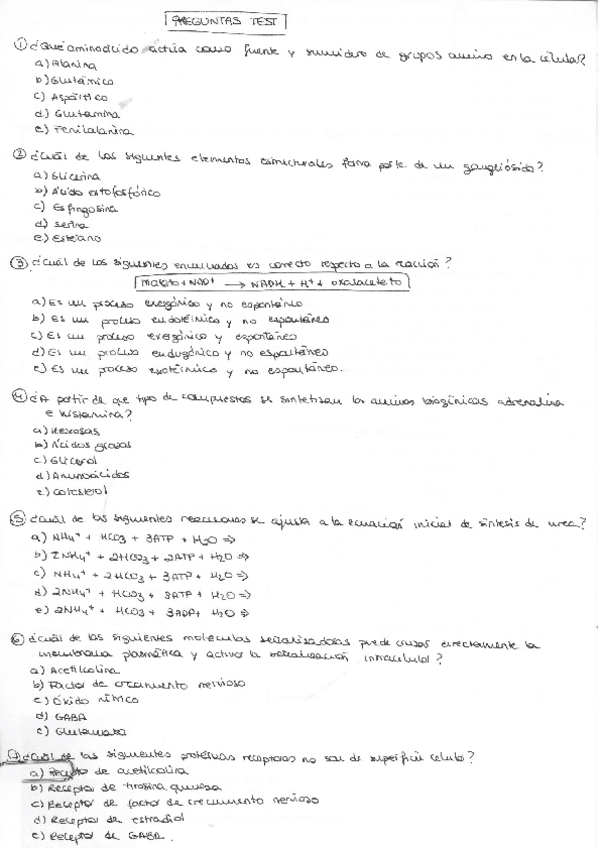 PREGUNTAS TEST
① ¿Qué aminoácido actúa como fuente y sumidero de grupos amino en la célula?
a) Alanina
b) Glutámico
c) Aspártico
d) Glutamina
e) Fenilalanina
② ¿Cuál de los siguientes elementos estructurales forma parte de un gangliósido?
a) Glicerina
b) Ácido ortofosfórico
c) Esfingosina
d) Serina
e) Esterano
③ ¿Cuál de los siguientes enunciados es correcto respecto a la reacción?
Malato + NAD⁺ → NADH + H⁺ + oxalacetato
a) Es un proceso exergónico y no espontáneo
b) Es un proceso endotérmico y no espontáneo
c) Es un proceso exergónico y espontáneo
d) Es un proceso endergónico y no espontáneo
e) Es un proceso exotérmico y no espontáneo.
④ ¿A partir de que tipo de compuestos se sintetizan las aminas biogénicas adrenalina
e histamina?
a) Hexosas
b) Ácidos grasos
c) Glicerol
d) Aminoácidos
e) Colesterol
⑤ ¿Cuál de las siguientes reacciones se ajusta a la ecuación inicial de síntesis de urea?
a) NH₄⁺ + HCO₃ + 2ATP + H₂O ⇒
b) 2NH₄⁺ + 2HCO₃ + 2ATP + H₂O ⇒
c) NH₄⁺ + 2HCO₃ + 3ATP + H₂O ⇒
d) 2NH₄⁺ + HCO₃ + 3ATP + H₂O ⇒
e) 2NH₄⁺ + HCO₃ + 3ADP + H₂O ⇒
⑥ ¿Cuál de las siguientes moléculas señalizadoras puede cruzar directamente la
membrana plasmática y activar la señalización intracelular?
a) Acetilcolina
b) Factor de crecimiento nervioso
c) Óxido nítrico
d) GABA
e) Glutamato
⑦ ¿Cuál de las siguientes proteínas receptoras no son de superficie celular?
a) de acetilcolina
b) Receptor de tirosina quinasa
c) Receptor de factor de crecimiento nervioso
d) Receptor de estradiol
e) Receptor de GABA.